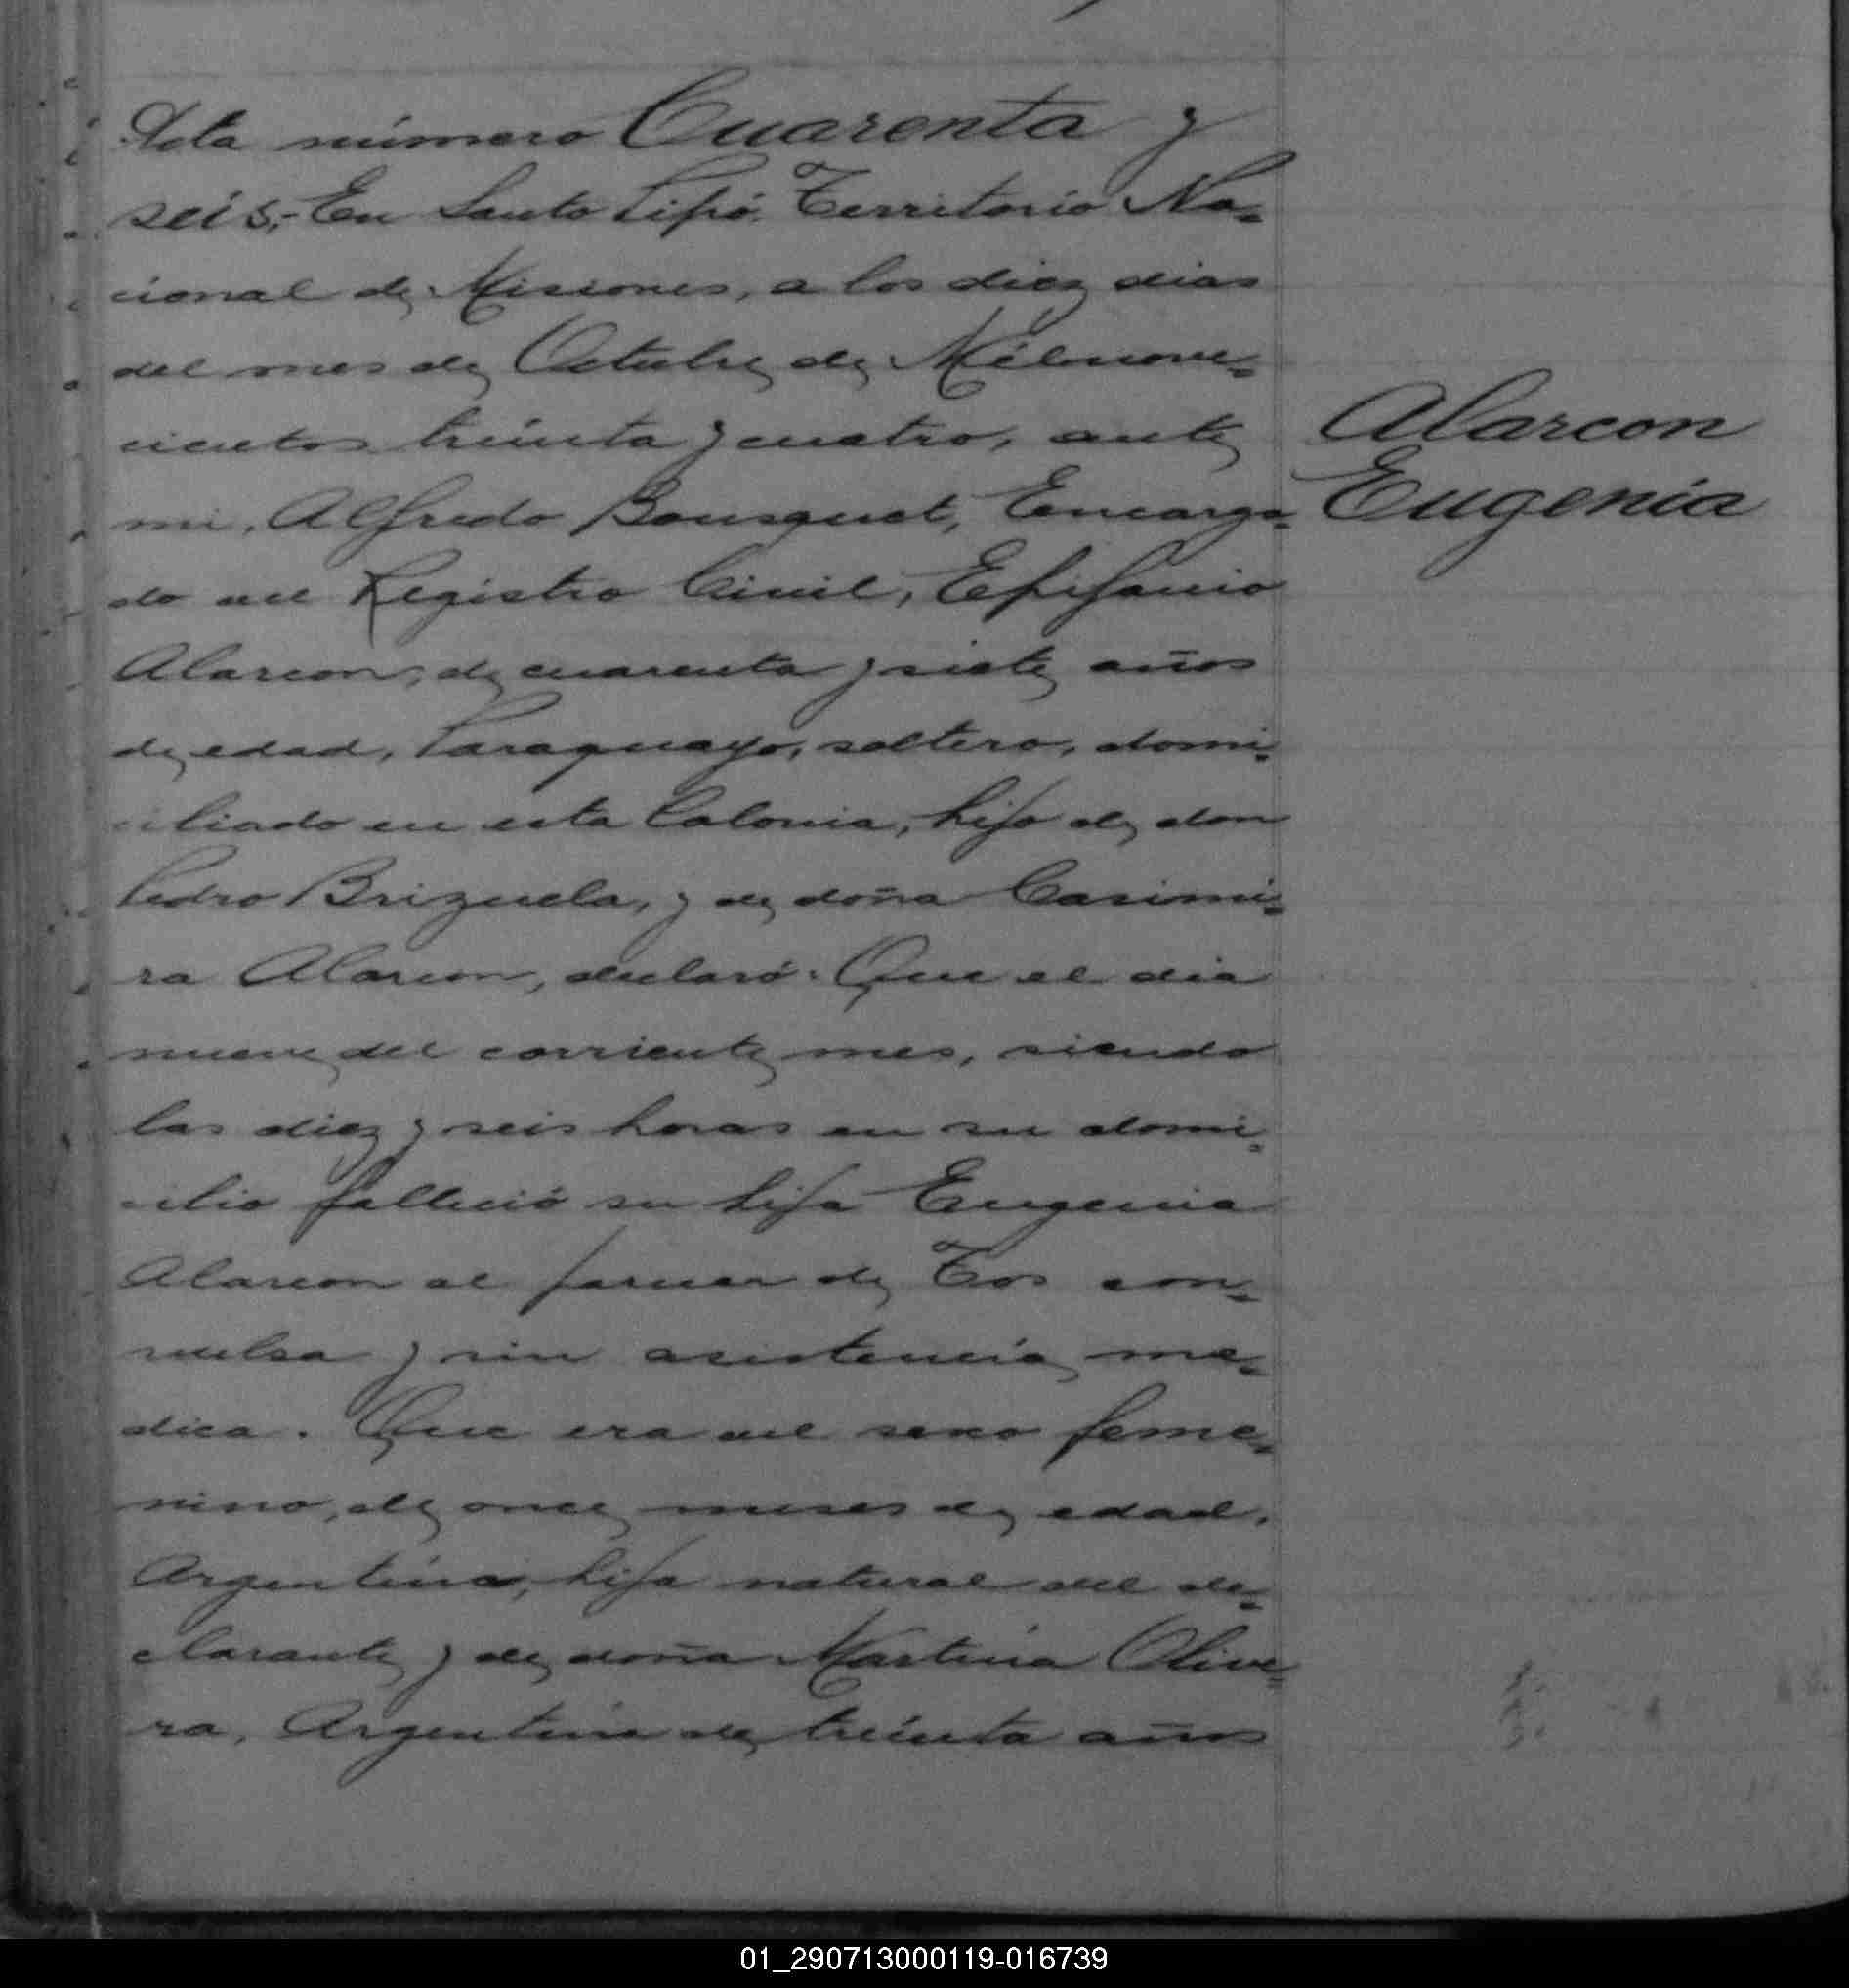 Acta número Cuarenta y
seis.- En Santo Pipó. Territorio Na=
cional de Misiones, a los diez dias
del mes de Octubre de Milnove=
cientos treinta y cuatro, ante
mi, Alfredo Bousquet, Encarga=
do del Registro Civil, Epifanio
Alarcon, de cuarenta y siete años
de edad, Paraguayo, soltero, domi=
ciliado en esta Colonia, hijo de don
Pedro Brizuela, y de doña Casimi=
ra Alarcon, declaró: Que el dia
nueve del corriente mes, siendo
las diez y seis horas en su domi=
cilio falleció su hija Eugenia
Alarcon al parecer de Tos con=
vulsa y sin asistencia me=
dica. Que era del sexo feme=
nino, de once meses de edad,
Argentina, hija natural del de=
clarante y de doña Martina Olive=
ra, Argentina de treinta años
Alarcon
Eugenia
01_290713000119-016739